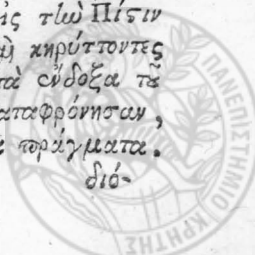 εἰς τὴν Πίστιν
κηρύττοντες
τὰ ἔνδοξα τοῦ
καταφρόνησαν,
πράγματα.
διό-
ΠΑΝΕΠΙΣΤΗΜΙΟ ΚΡΗΤΗΣ